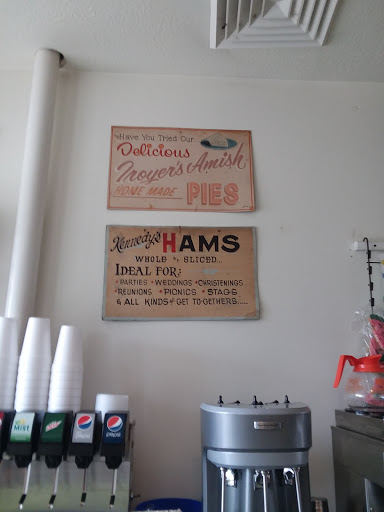 Have You Tried Our
Delicious
Troyer's Amish
HOME MADE PIES
Kennedy's HAMS
WHOLE or SLICED...
IDEAL FOR:
• PARTIES • WEDDINGS • CHRISTENINGS
• REUNIONS • PICNICS • STAGS
& ALL KINDS of GET TO-GETHERS.....
Mist
pepsi